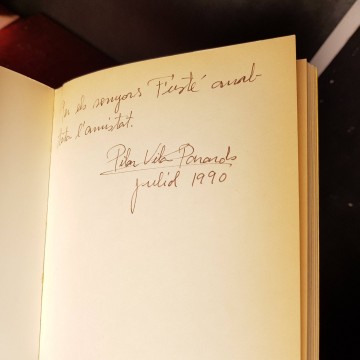 els senyors Fusté amb
tota l'amistat.
Pilar Vila
juliol 1990